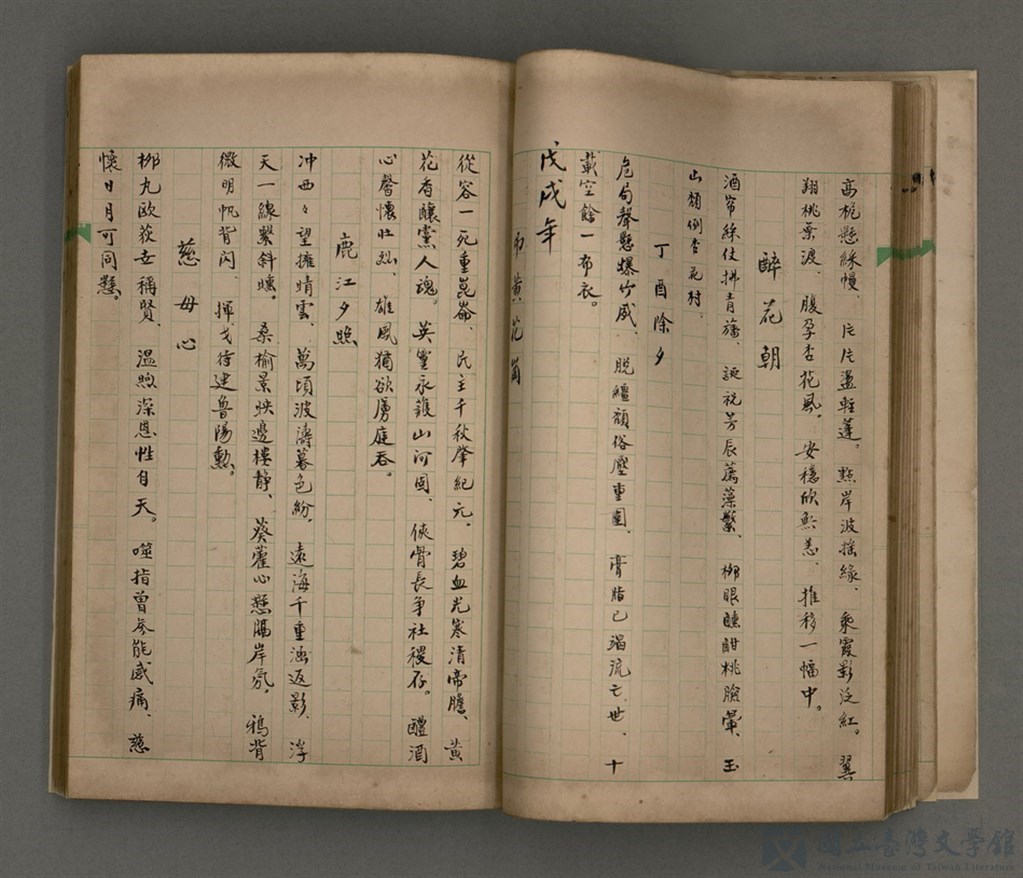 高桅懸綵幔、片片盪輕蓬。點岸波搖綠、乘霞影泛紅。翼
翔桃葉渡、腹孕杏花風。安穩欣無恙、推移一幅中。
醉花朝
酒帘綵仗拂青旛、誕祝芳辰薦藻蘩、柳眼醺酣桃臉暈、玉
山頹倒杏花村。
丁酉除夕
危局聲懸爆竹威、脫韁頹俗壓重圍、膏脂已竭流亡世、十
載空餘一布衣。
戊戌年
弔黃花崗
從容一死重崑崙、民主千秋肇紀元。碧血光寒清帝膽、黃
花香釀黨人魂。英靈永護山河固、俠骨長爭社稷存。醴酒
心馨懷壯烈、雄風猶欲虜庭吞。
鹿江夕照
沖西々望擁晴雲、萬頃波濤暮色紛、遠海千重涵返影、浮
天一線繫斜曛。桑榆景映邊樓靜、葵藿心懸隔岸氛。鴉背
微明帆背闪、揮戈待建魯陽勲。
慈母心
柳丸歐荻世稱賢、溫煦深恩性自天。噬指曾參能感痛、慈
懷日月可同懸。
國立臺灣文學館
National Museum of Taiwan Literature